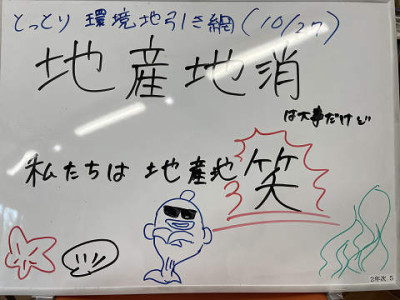 とっとり 環境地引き網(10/27)
地産地消
は大事だけど
私たちは 地産地笑